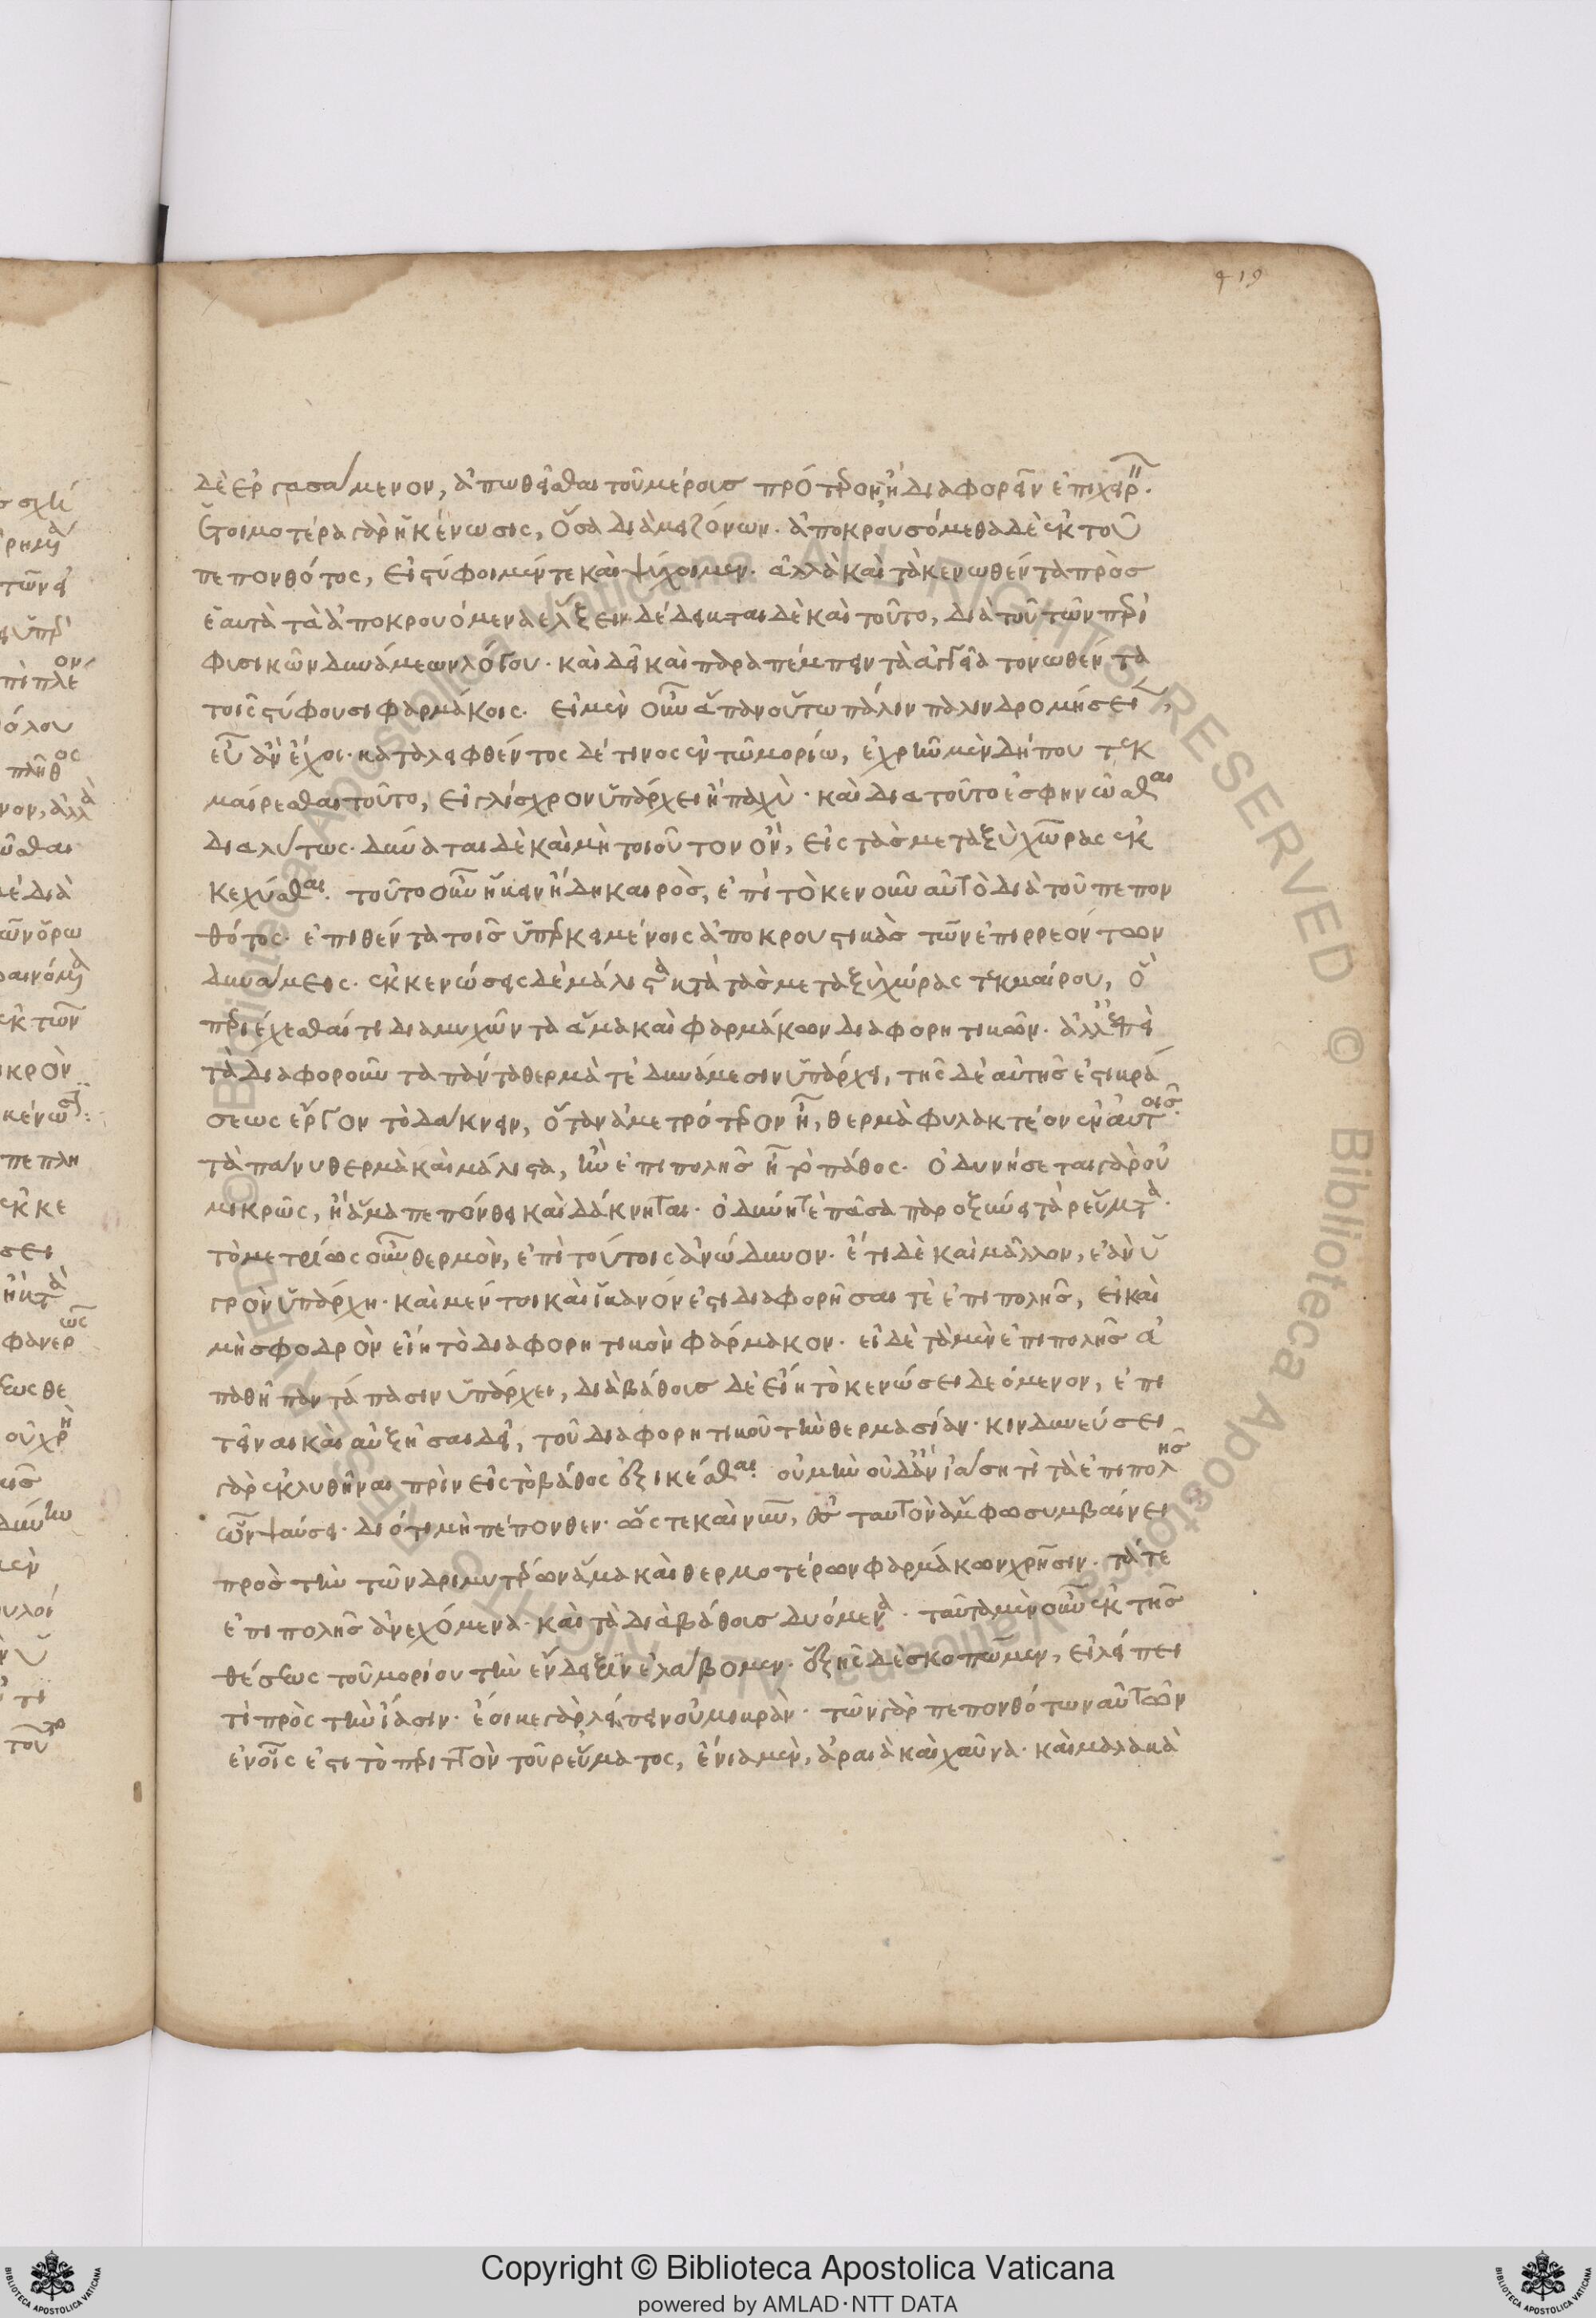 419
δὲ ἐργασάμενον, ἀπωθεῖσθαι τοῦ μέρους πρότερον ἢ διαφορεῖν ἐπιχειρ.
ἑτοιμοτέρα γὰρ ἡ κένωσις, ὅσα διὰ μειζόνων. ἀποκρουσόμεθα δὲ ἐκ τοῦ
πεπονθότος, εἰ στύφοιμέν τε καὶ ψύχοιμεν. ἀλλὰ καὶ τὰ κενωθέντα πρὸς
ἑαυτὰ τὰ ἀποκρουόμενα ἕλξειν. δέδεικται δὲ καὶ τοῦτο, διὰ τοῦ τῶν περὶ
φυσικῶν δυνάμεων λόγου. καὶ δεῖ καὶ παραπέμπειν τὰ ἀγγεῖα τονωθέντα
τοῖς στύφουσι φαρμάκοις. εἰ μὲν οὖν ἅπαν οὕτω πάλιν παλινδρομήσει,
εὖ ἂν ἔχοι. καταλειφθέντος δέ τινος ἐν τῶ μορίω, ἐχρῆν μὲν δήπου τεκ
μαίρεσθαι τοῦτο, εἰ γλίσχρον ὑπάρχει ἢ παχύ. καὶ διὰ τοῦτο ἐσφηνῶσθαι
διαλύτως. δύναται δὲ καὶ μὴ τοιοῦτον ὂν, εἰς τὰς μεταξὺ χώρας ἐκ
κεχύσθαι. τοῦτο οὖν ἥκειν ἤδη καιρὸς, ἐπὶ τὸ κενοῦν αὐτὸ διὰ τοῦ πεπον
θότος. ἐπιθέντα τοῖς ὑπερκειμένοις ἀποκρουστικὰς τῶν ἐπιρρεόντων
δυνάμεις. ἐκκενώσεις δὲ μάλιστα κατὰ τὰς μεταξὺ χώρας τεκμαίρου,
περιέχεσθαί τι διαμυχῶντα ἅμα καὶ φαρμάκων διαφορητικῶν. ἀλλ' ἐπεὶ
τὰ διαφοροῦντα πάντα θερμὰ τὲ δυνάμεσιν ὑπάρχει, τῆς δὲ αὐτῆς ἐστι κρά
σεως ἔργον τὸ δάκνειν, ὅταν ἀμετρότερον ἦ, θερμὰ φυλακτέον ἐν αὐτοῖς.
τὰ πάνυ θερμὰ καὶ μάλιστα, ἢν ἐπιπολῆς ἦ τὸ πάθος. ὀδυνήσεται γὰρ οὐ
μικρῶς, ἢ ἅμα πεπόνθει καὶ δάκνηται. ὀδύνη τὲ πᾶσα παροξύνει τὰ ῥεύματα.
τὸ μετρίως οὖν θερμὸν, ἐπὶ τούτοις ἀνώδυνον. ἔτι δὲ καὶ μᾶλλον, ἐὰν ὑ
γρὸν ὑπάρχη. καὶ μέντοι καὶ ἱκανόν ἐστι διαφορῆσαι τὲ ἐπιπολῆς, εἰ καὶ
μὴ σφοδρὸν εἴη τὸ διαφορητικὸν φάρμακον. εἰ δὲ τὰ μὲν ἐπιπολῆς ἀ
παθῆ παντάπασιν ὑπάρχει, διὰ βάθους δὲ εἴη τὸ κενώσει δεόμενον, ἐπι
τεῖναι καὶ αὐξῆσαι δεῖ, τοῦ διαφορητικοῦ τὴν θερμασίαν. κινδυνεύσει
γὰρ ἐκλυθῆναι πρὶν εἰς τὸ βάθος ἐξικέσθαι. οὐ μὴν οὐδ' ἀνιάση τι τὰ ἐπιπολῆς
ὧν ψαύσει. διότι μὴ πέπονθεν. ὥστε καὶ νῦν, ταυτὸν ἄμφω συμβαίνει
πρὸς τὴν τῶν δριμυτέρων ἅμα καὶ θερμοτέρων φαρμάκων χρῆσιν. τά τε
ἐπιπολῆς ἀνεχόμενα. καὶ τὰ διὰ βάθους δυόμενα. ταῦτα μὲν οὖν ἐκ τῆς
θέσεως τοῦ μορίου τὴν ἔνδειξιν ἐλάβομεν. ἑξῆς δὲ σκοπῶμεν, εἰ λείπει
τι πρὸς τὴν ἴασιν. ἔοικε γὰρ λείπειν οὐ μικρὰν. τῶν γὰρ πεπονθότων αὐτῶν
ἐν οἷς ἐστι τὸ περιττὸν τοῦ ῥεύματος, ἔνια μὲν, ἀραιὰ καὶ χαῦνα. καὶ μαλακὰ
Copyright © Biblioteca Apostolica Vaticana
powered by AMLAD·NTT DATA